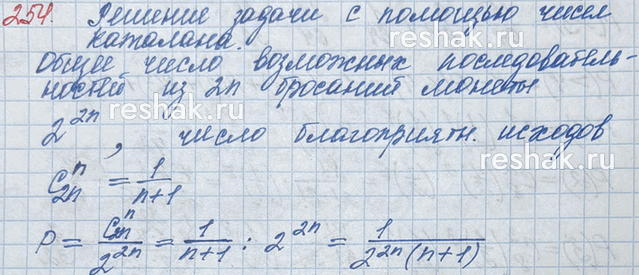 254. Решение задачи с помощью чисел
каталана.
Общее число возможных последователь-
ностей из 2n бросаний монеты
2^{2n}, число благоприятн. исходов
C_{2n}^{n} = \frac{1}{n+1}
P = \frac{C_{2n}^{n}}{2^{2n}} = \frac{1}{n+1} : 2^{2n} = \frac{1}{2^{2n}(n+1)}
reshak.ru
reshak.ru
reshak.ru
reshak.ru
reshak.ru